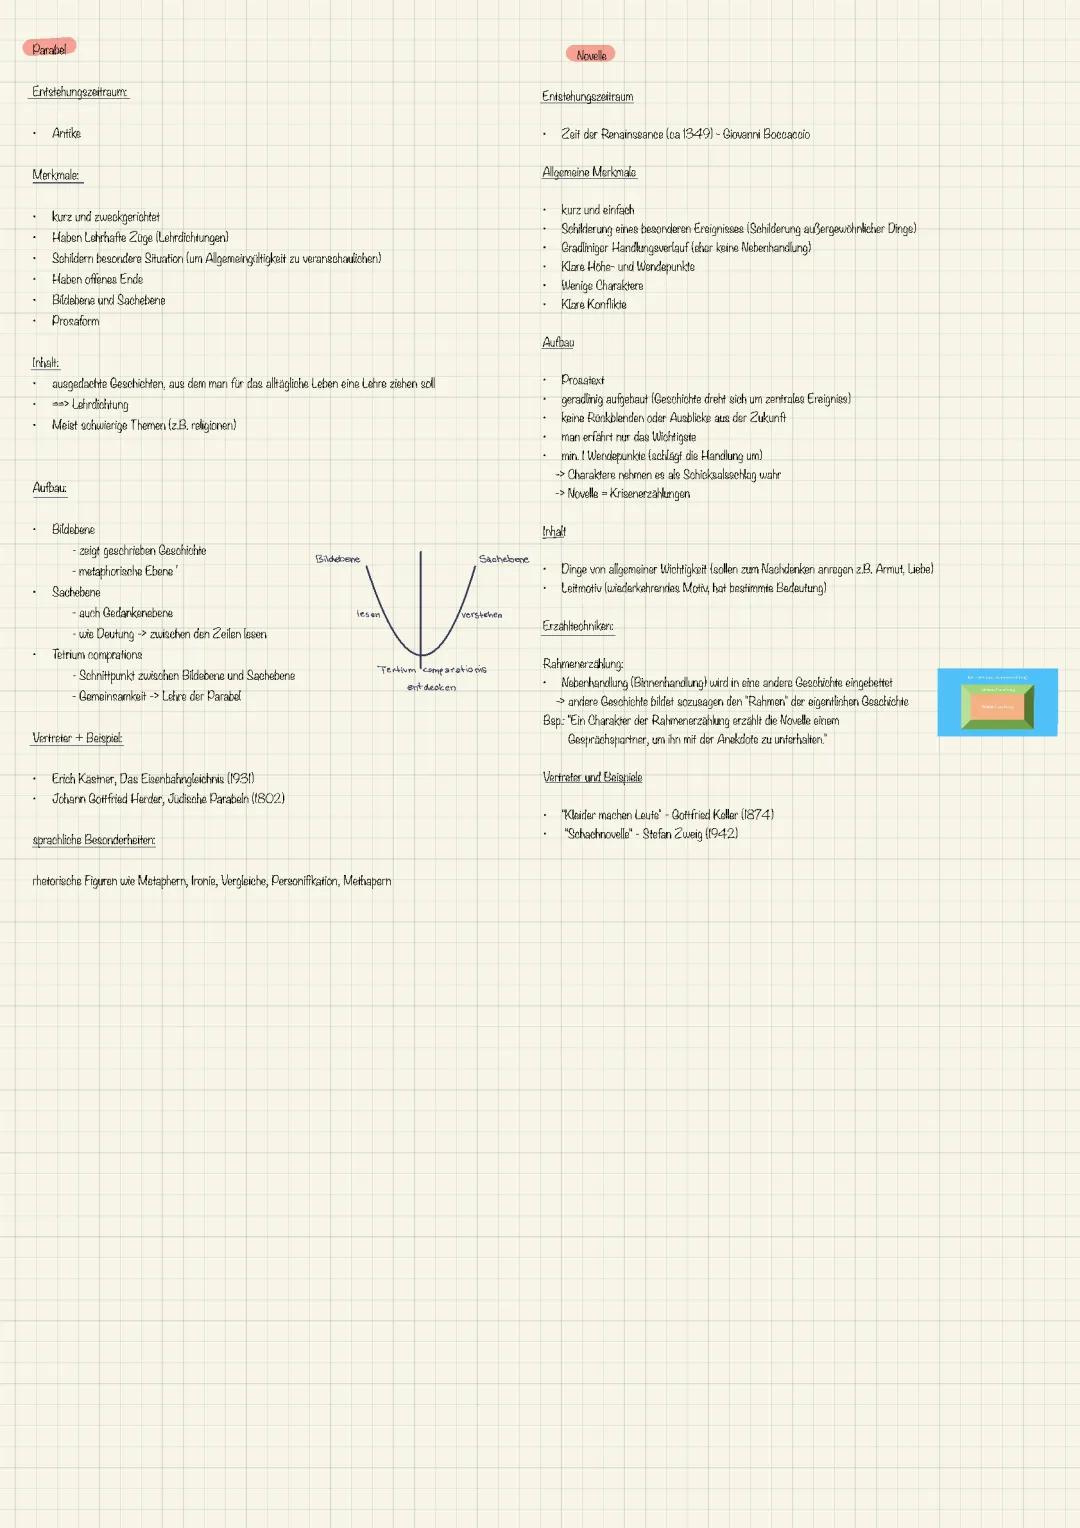 Parabel
Entstehungszeitraum:
• Antike
Merkmale:
• kurz und zweckgerichtet
• Haben Lehrhafte Züge (Lehrdichtungen)
• Schildern besondere Situation (um Allgemeingültigkeit zu veranschaulichen)
• Haben offenes Ende
• Bildebene und Sachebene
• Prosaform
Inhalt:
• ausgedachte Geschichten, aus dem man für das alltägliche Leben eine Lehre ziehen soll
• ==> Lehrdichtung
• Meist schwierige Themen (z.B. religionen)
Aufbau:
• Bildebene
- zeigt geschrieben Geschichte
- metaphorische Ebene '
• Sachebene
- auch Gedankenebene
- wie Deutung -> zwischen den Zeilen lesen
• Tetrium comprations
- Schnittpunkt zwischen Bildebene und Sachebene
- Gemeinsamkeit -> Lehre der Parabel
Bildebene
Sachebene
lesen
verstehen
Tertium comparationis
entdecken
Vertreter + Beispiel:
• Erich Kästner, Das Eisenbahngleichnis (1931)
• Johann Gottfried Herder, Jüdische Parabeln (1802)
sprachliche Besonderheiten:
rhetorische Figuren wie Metaphern, Ironie, Vergleiche, Personifikation, Methapern
Novelle
Entstehungszeitraum
• Zeit der Renainssance (ca 1349) - Giovanni Boccaccio
Allgemeine Merkmale
• kurz und einfach
• Schilderung eines besonderen Ereignisses (Schilderung außergewöhnlicher Dinge)
• Gradliniger Handlungsverlauf (eher keine Nebenhandlung)
• Klare Höhe- und Wendepunkte
• Wenige Charaktere
• Klare Konflikte
Aufbau
• Prosatext
• geradlinig aufgebaut (Geschichte dreht sich um zentrales Ereigniss)
• keine Rückblenden oder Ausblicke aus der Zukunft
• man erfährt nur das Wichtigste
• min. 1 Wendepunkte (schlägt die Handlung um)
-> Charaktere nehmen es als Schicksalsschlag wahr
-> Novelle = Krisenerzählungen
Inhalt
• Dinge von allgemeiner Wichtigkeit (sollen zum Nachdenken anregen z.B. Armut, Liebe)
• Leitmotiv (wiederkehrendes Motiv, hat bestimmte Bedeutung)
Erzähltechniken:
Rahmenerzählung:
• Nebenhandlung (Binnenhandlung) wird in eine andere Geschichte eingebettet
-> andere Geschichte bildet sozusagen den "Rahmen" der eigentlichen Geschichte
Bsp.: "Ein Charakter der Rahmenerzählung erzählt die Novelle einem
Gesprächspartner, um ihn mit der Anekdote zu unterhalten."
Vertreter und Beispiele
• "Kleider machen Leute" - Gottfried Keller (1874)
• "Schachnovelle" - Stefan Zweig (1942)